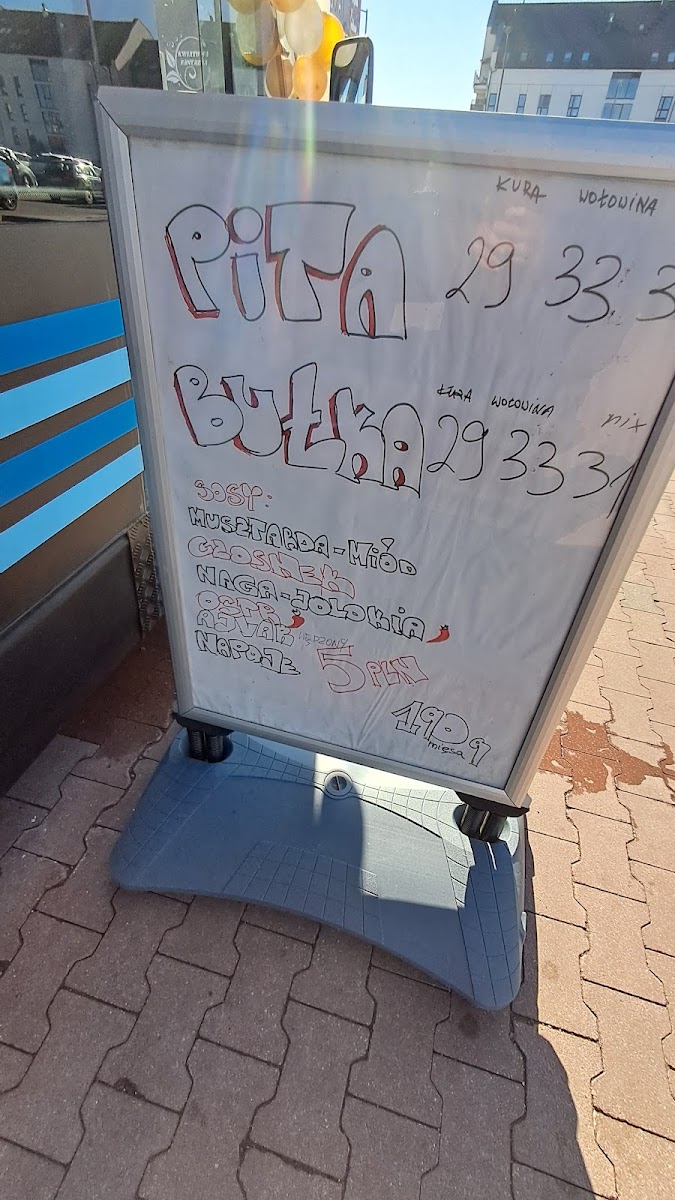 KURA WOŁOWINA
PITA 29 33 3
KURA WOŁOWINA mix
BUŁKA 29 33 31
SOSY:
MUSZTARDA-MIÓD
CZOSNEK
NAGA-JOLOKIA
OSTRY
AJVAR WĘDZONY
NAPOJE 5 PLN
190g
mięsa